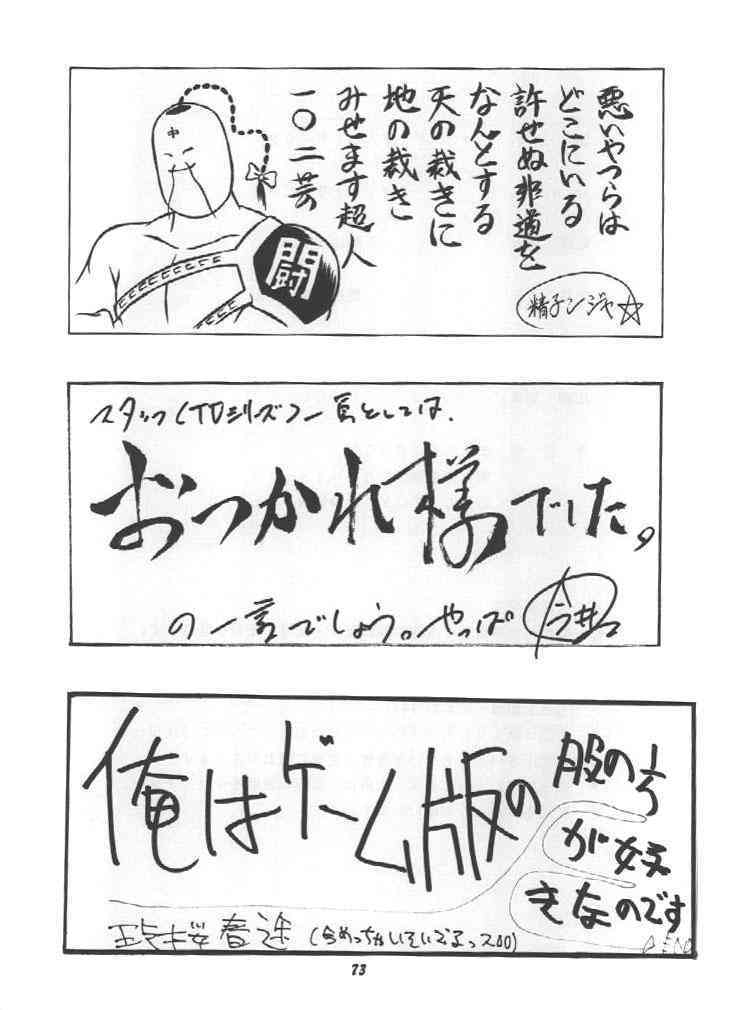 悪いやつらは
どこにいる
許せぬ非道を
なんとする
天の裁きに
地の裁き
みせます超人
一〇二芸
中
闘
精子ンジャ☆
スタッフ(TDシリーズ)一員としては、
おつかれ様でした。
の一言でしょう。やっぱ
今井
俺はゲーム版の
股のほう
が好
きなのです
桜春途 (今めっちゃいそいでるっス00)
END
73